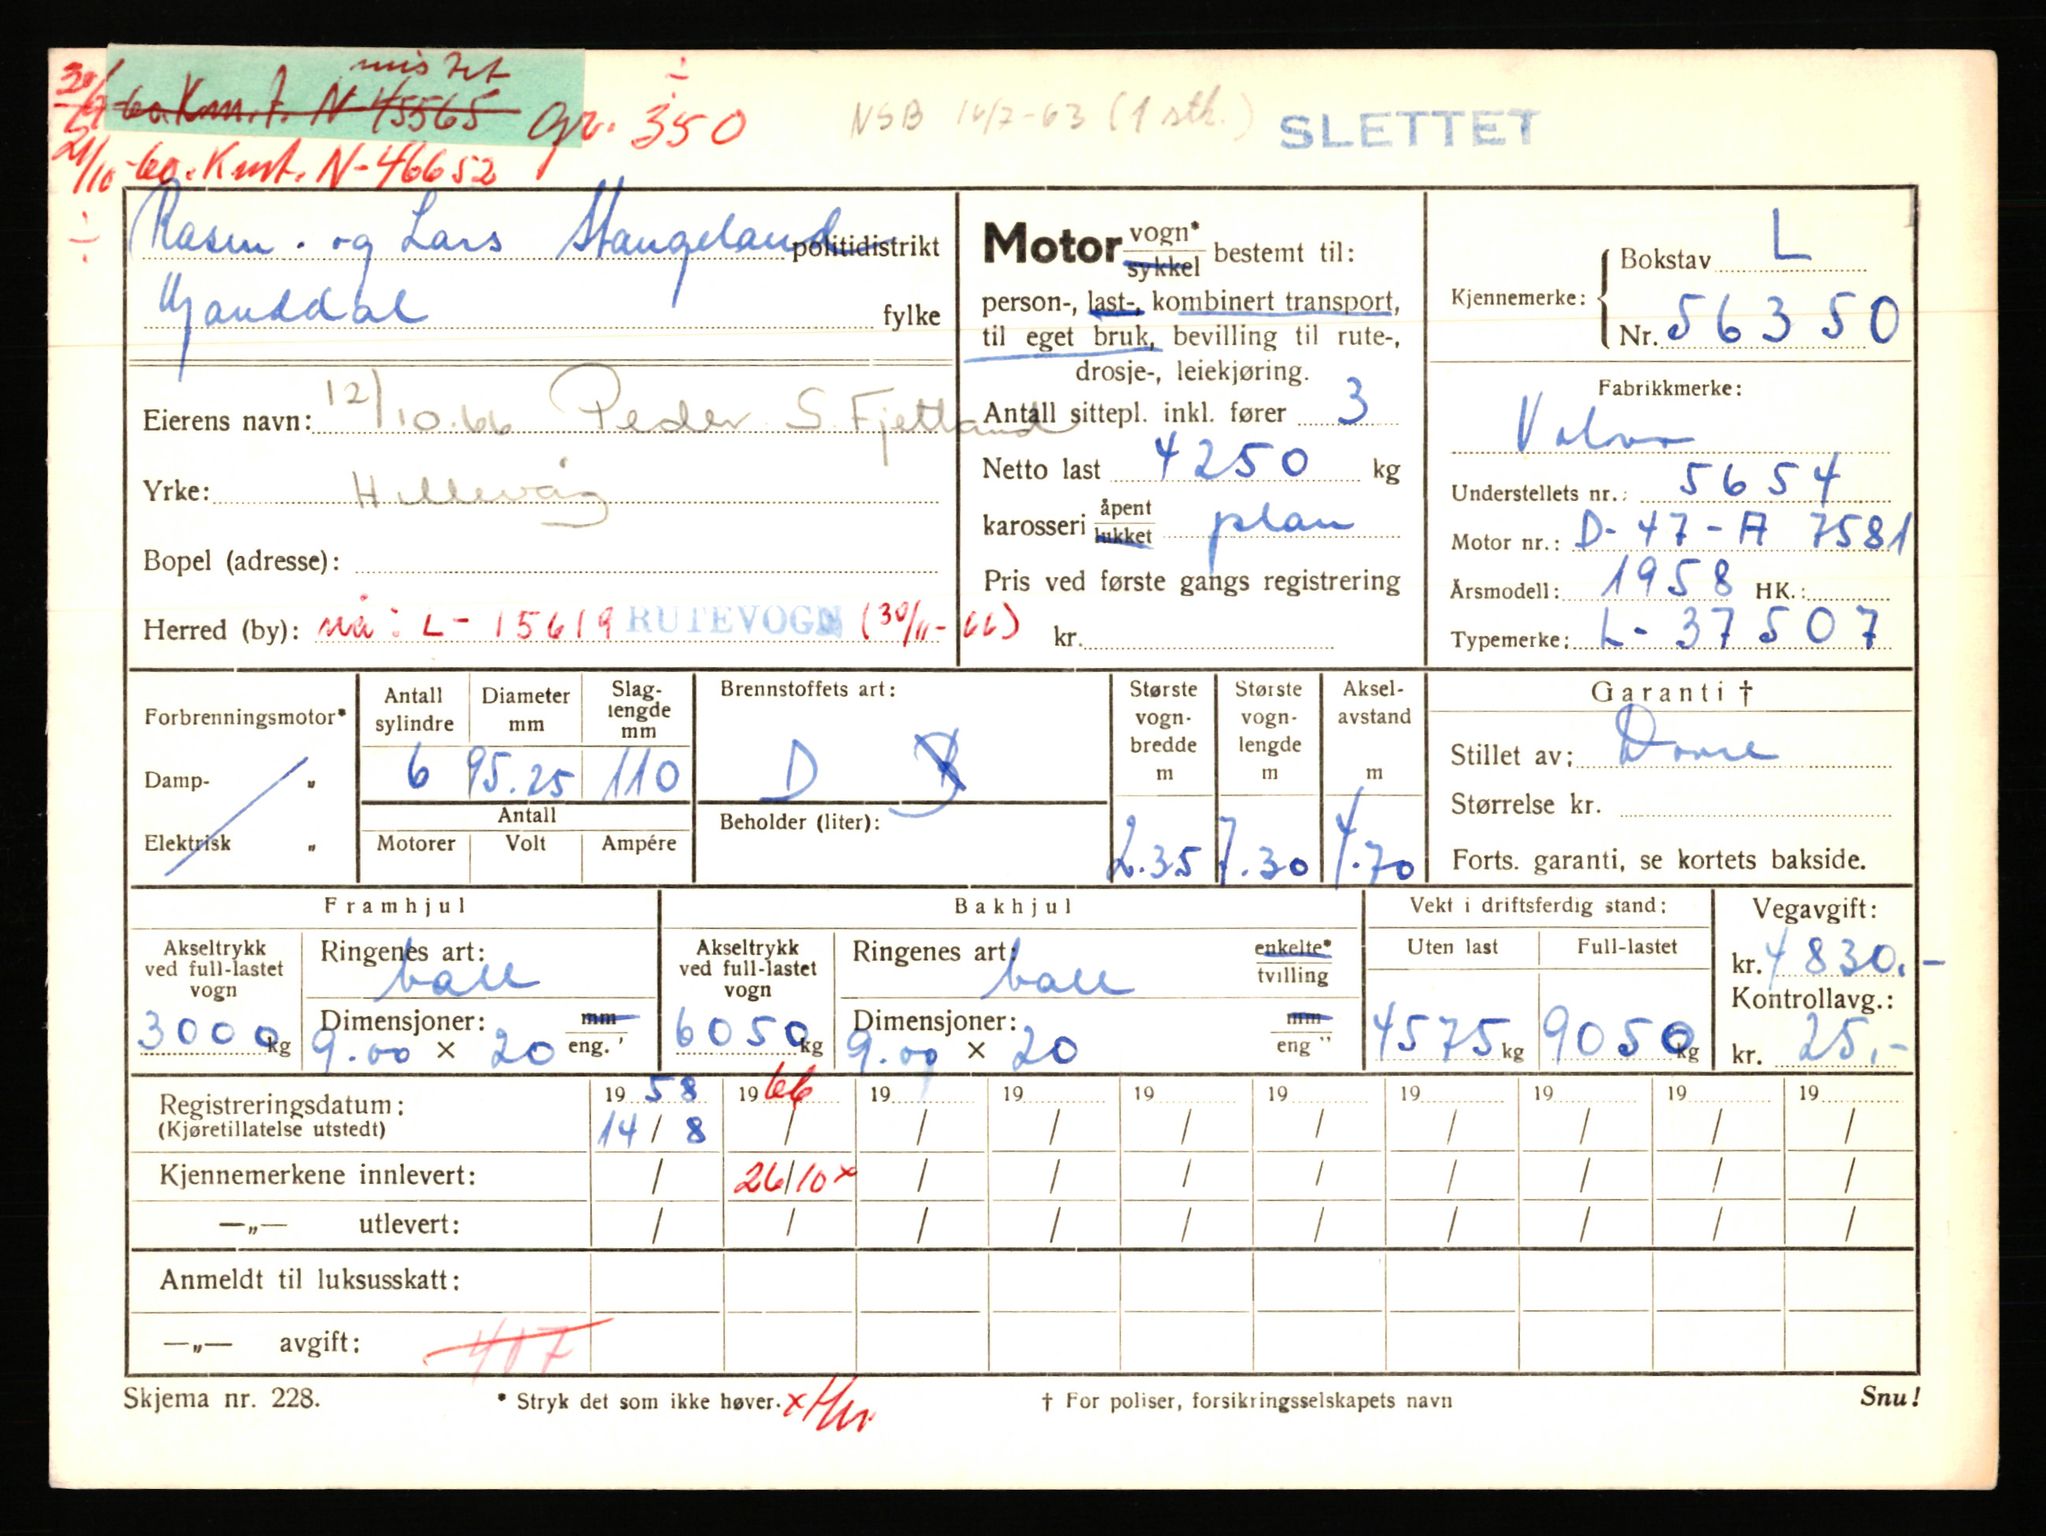 mistet
30/9 60. Km.t. N-45565
gr. ÷ 350
NSB 16/7-63 (1 stk.)
SLETTET
21/10-60. Kmt. N-46652
÷
Rasm. og Lars Stangeland politidistrikt
Ganddal fylke
Eierens navn: 12/10.66 Peder S. Fjetland
Yrke: Hillevåg
Bopel (adresse):
Herred (by): nå: L-15619 RUTEVOGN (30/11-66)
Motor vogn* / sykkel bestemt til:
person-, last-, kombinert transport,
til eget bruk, bevilling til rute-,
drosje-, leiekjøring.
Antall sittepl. inkl. fører 3
Netto last 4250 kg
karosseri åpent / lukket plan
Pris ved første gangs registrering
kr.
Kjennemerke: Bokstav L
Nr. 56350
Fabrikkmerke:
Volvo
Understellets nr.: 5654
Motor nr.: D-47-A 7581
Årsmodell: 1958 HK.:
Typemerke: L-37507
Forbrenningsmotor*
Damp- „
Elektrisk „
Antall sylindre 6
Diameter mm 95.25
Slaglengde mm 110
Antall
Motorer Volt Ampére
Brennstoffets art:
D B
Beholder (liter):
Største vognbredde m 2.35
Største vognlengde m 7.30
Akselavstand m 4.70
Garanti †
Stillet av: Dovre
Størrelse kr.
Forts. garanti, se kortets bakside.
Framhjul
Akseltrykk ved full-lastet vogn 3000 kg
Ringenes art: ball
Dimensjoner: mm / eng. "
9.00 × 20
Bakhjul
Akseltrykk ved full-lastet vogn 6050 kg
Ringenes art: ball enkelte* / tvilling
Dimensjoner: mm / eng "
9.00 × 20
Vekt i driftsferdig stand:
Uten last 4575 kg
Full-lastet 9050 kg
Vegavgift:
kr. 4830.-
Kontrollavg.:
kr. 25.-
Registreringsdatum: 19 58 19 66 19 19 19 19 19 19 19 19
(Kjøretillatelse utstedt) 14/8 / / / / / / / / /
Kjennemerkene innlevert: / 26/10 x / / / / / / / /
—„— utlevert: / / / / / / / / / /
Anmeldt til luksusskatt:
—„— avgift: 407
Skjema nr. 228.
* Stryk det som ikke høver.
x
† For poliser, forsikringsselskapets navn
Snu!